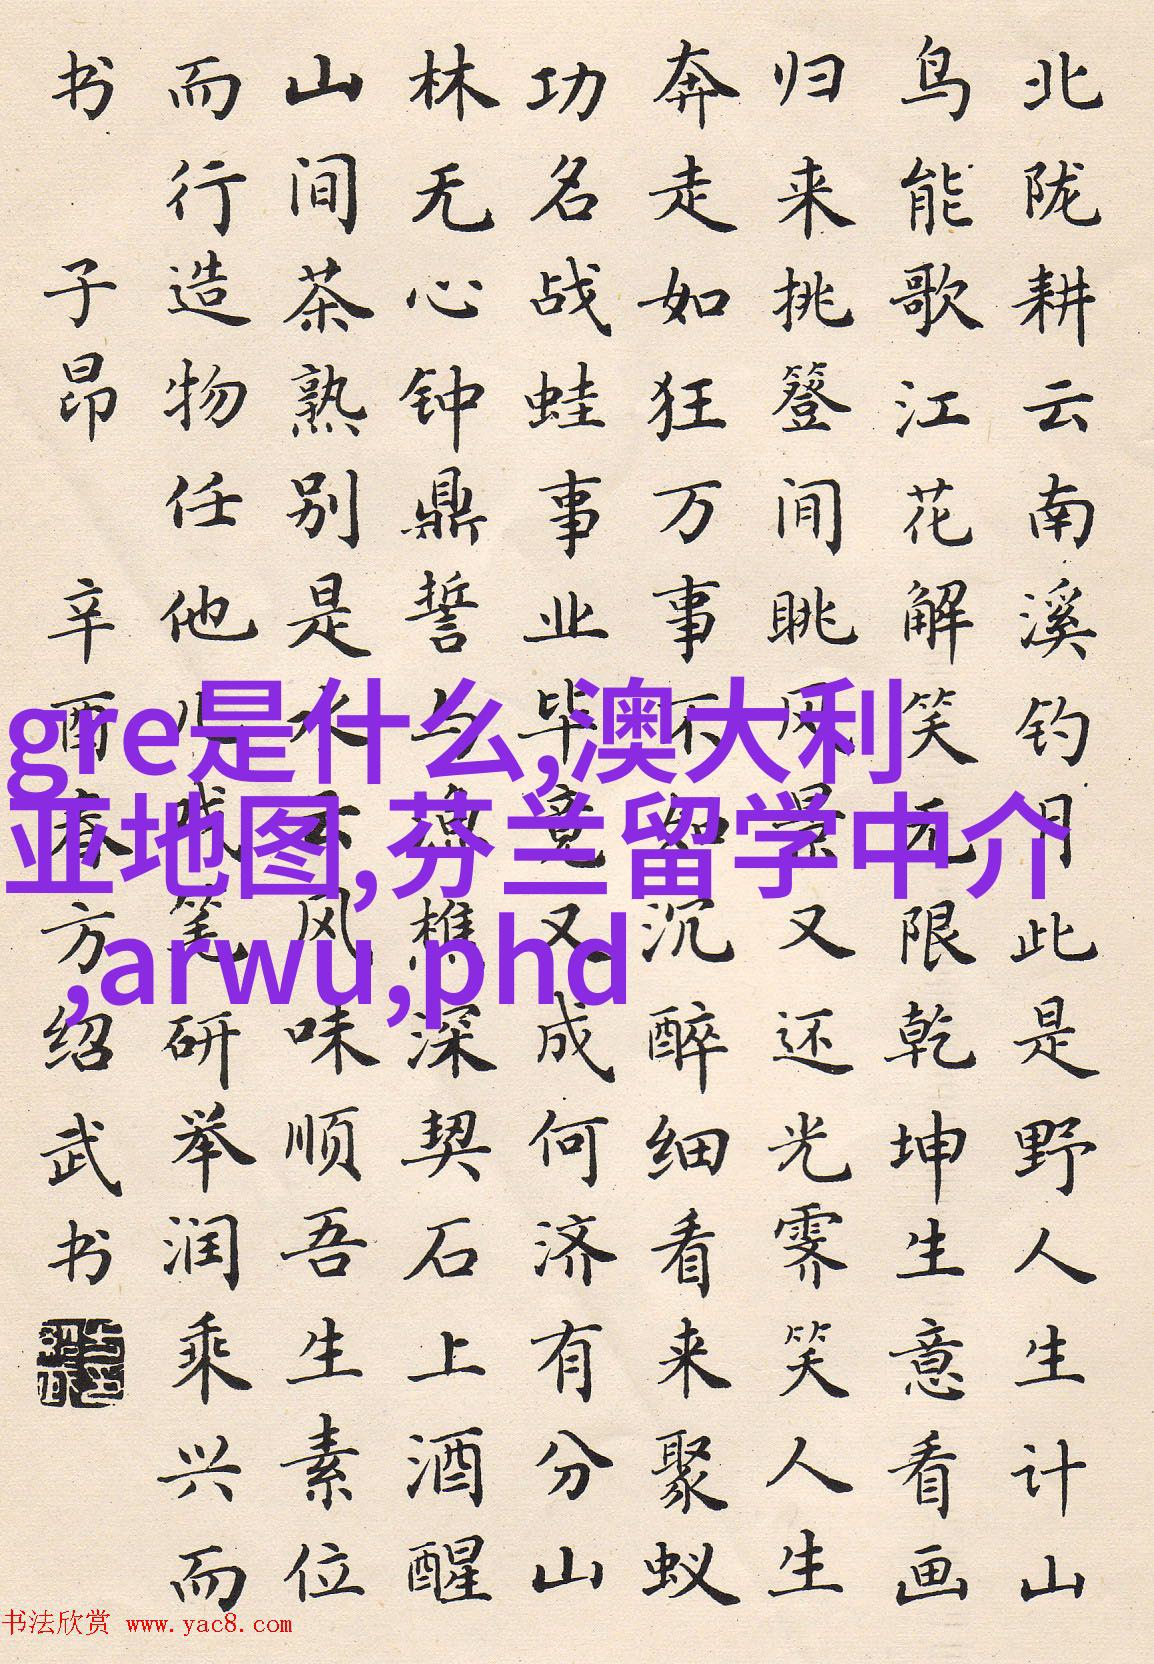 北陇耕云南溪钓月此是野人生计山
鸟能歌江花解笑无限乾坤生意看画
归来挑簦间眺风景又还光霁笑人生
奔走如狂万事不如沉醉细看来聚蚁
功名战蛙事业毕竟又成何济有分山
林无心钟鼎誓与渔樵深契石上酒醒
山间茶熟别是水云风味顺吾生素位
而行造物任他儿戏笔研举润乘兴而
书 子昂 辛酉春方绍武书
gre是什么,澳大利
亚地图,芬兰留学中介
,arwu,phd
书法欣赏 www.yac8.com